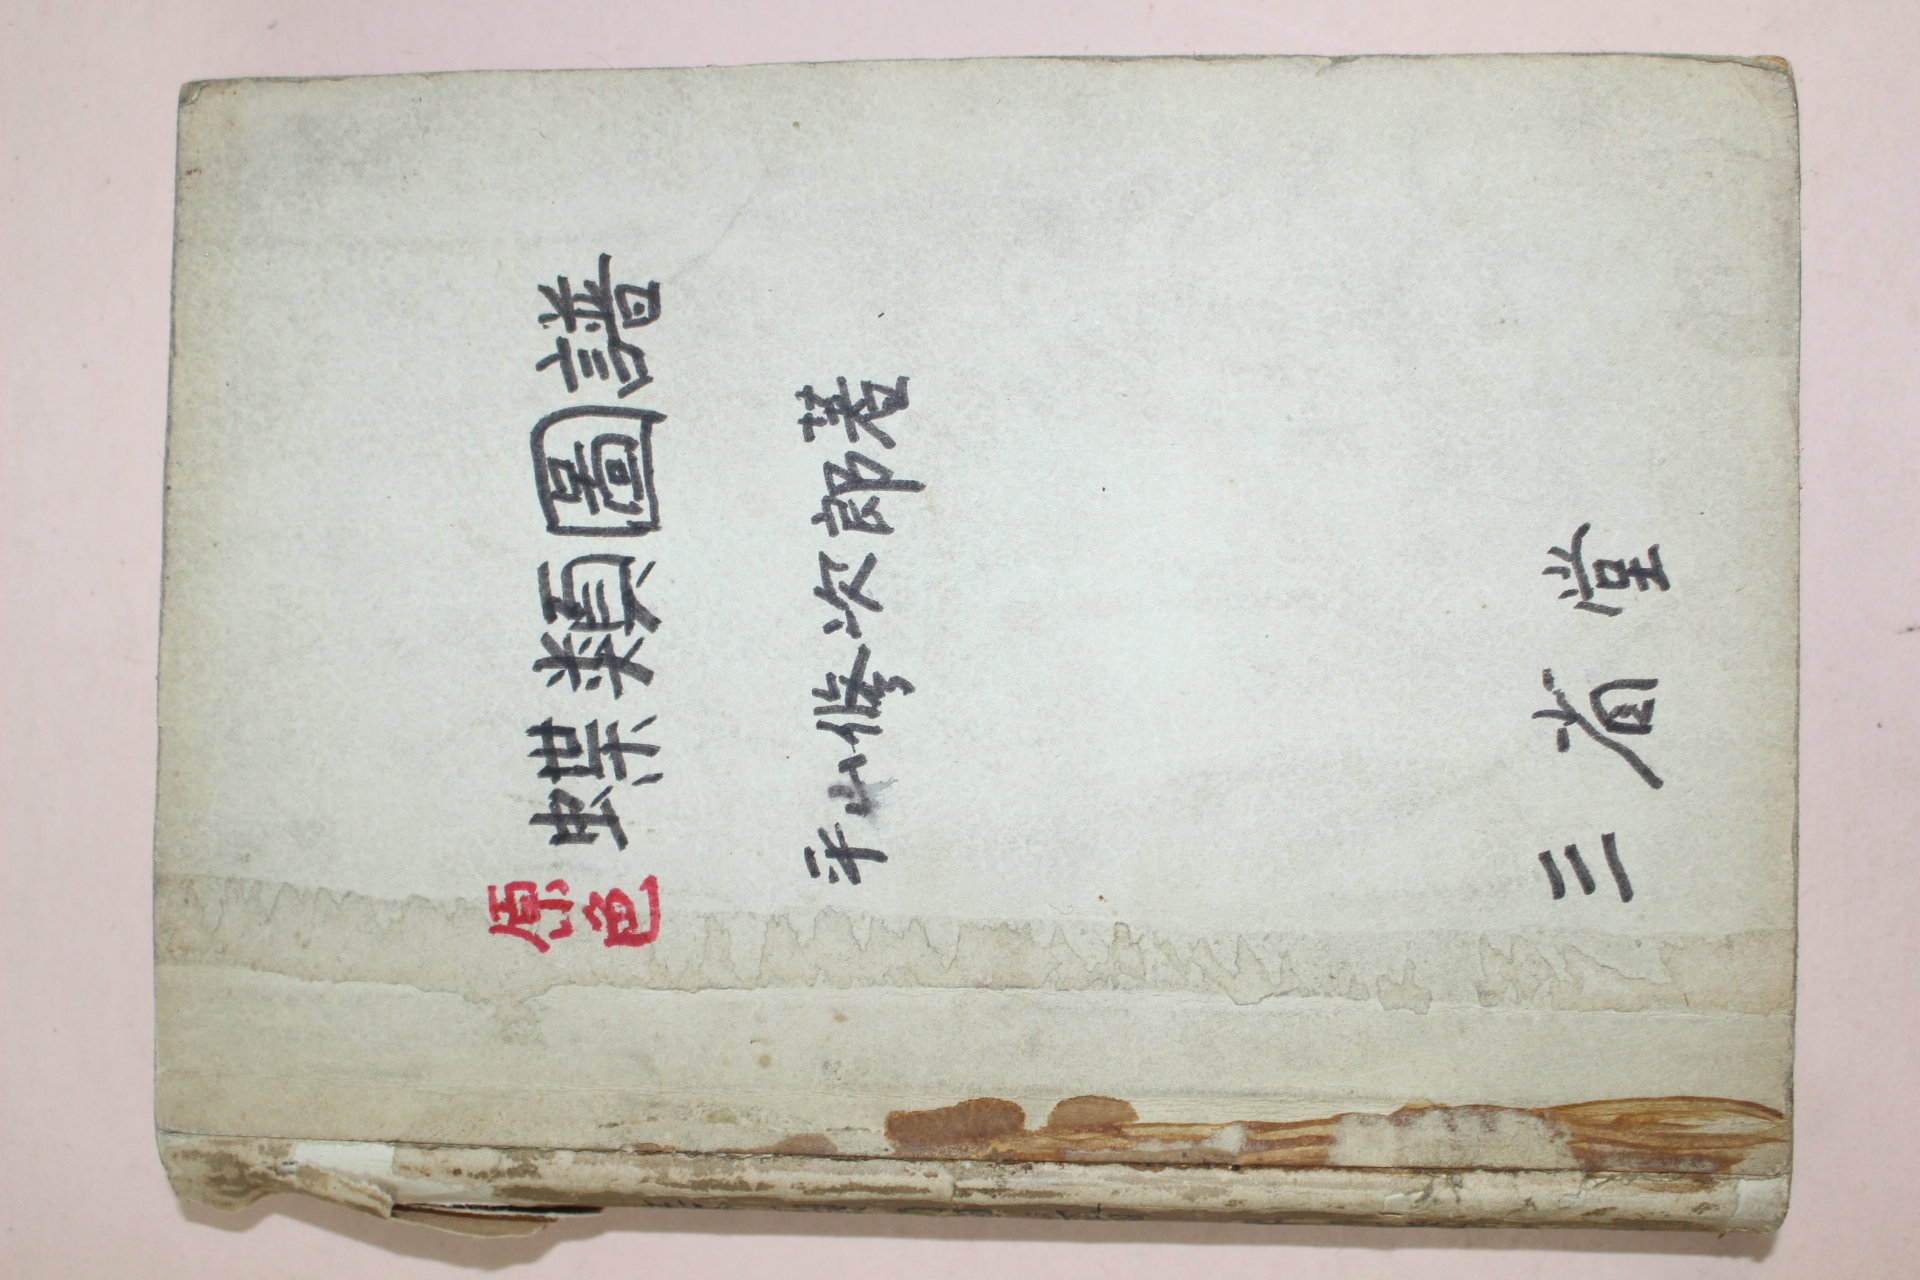 原色
蝶類圖譜
平山修次郎著
三省堂